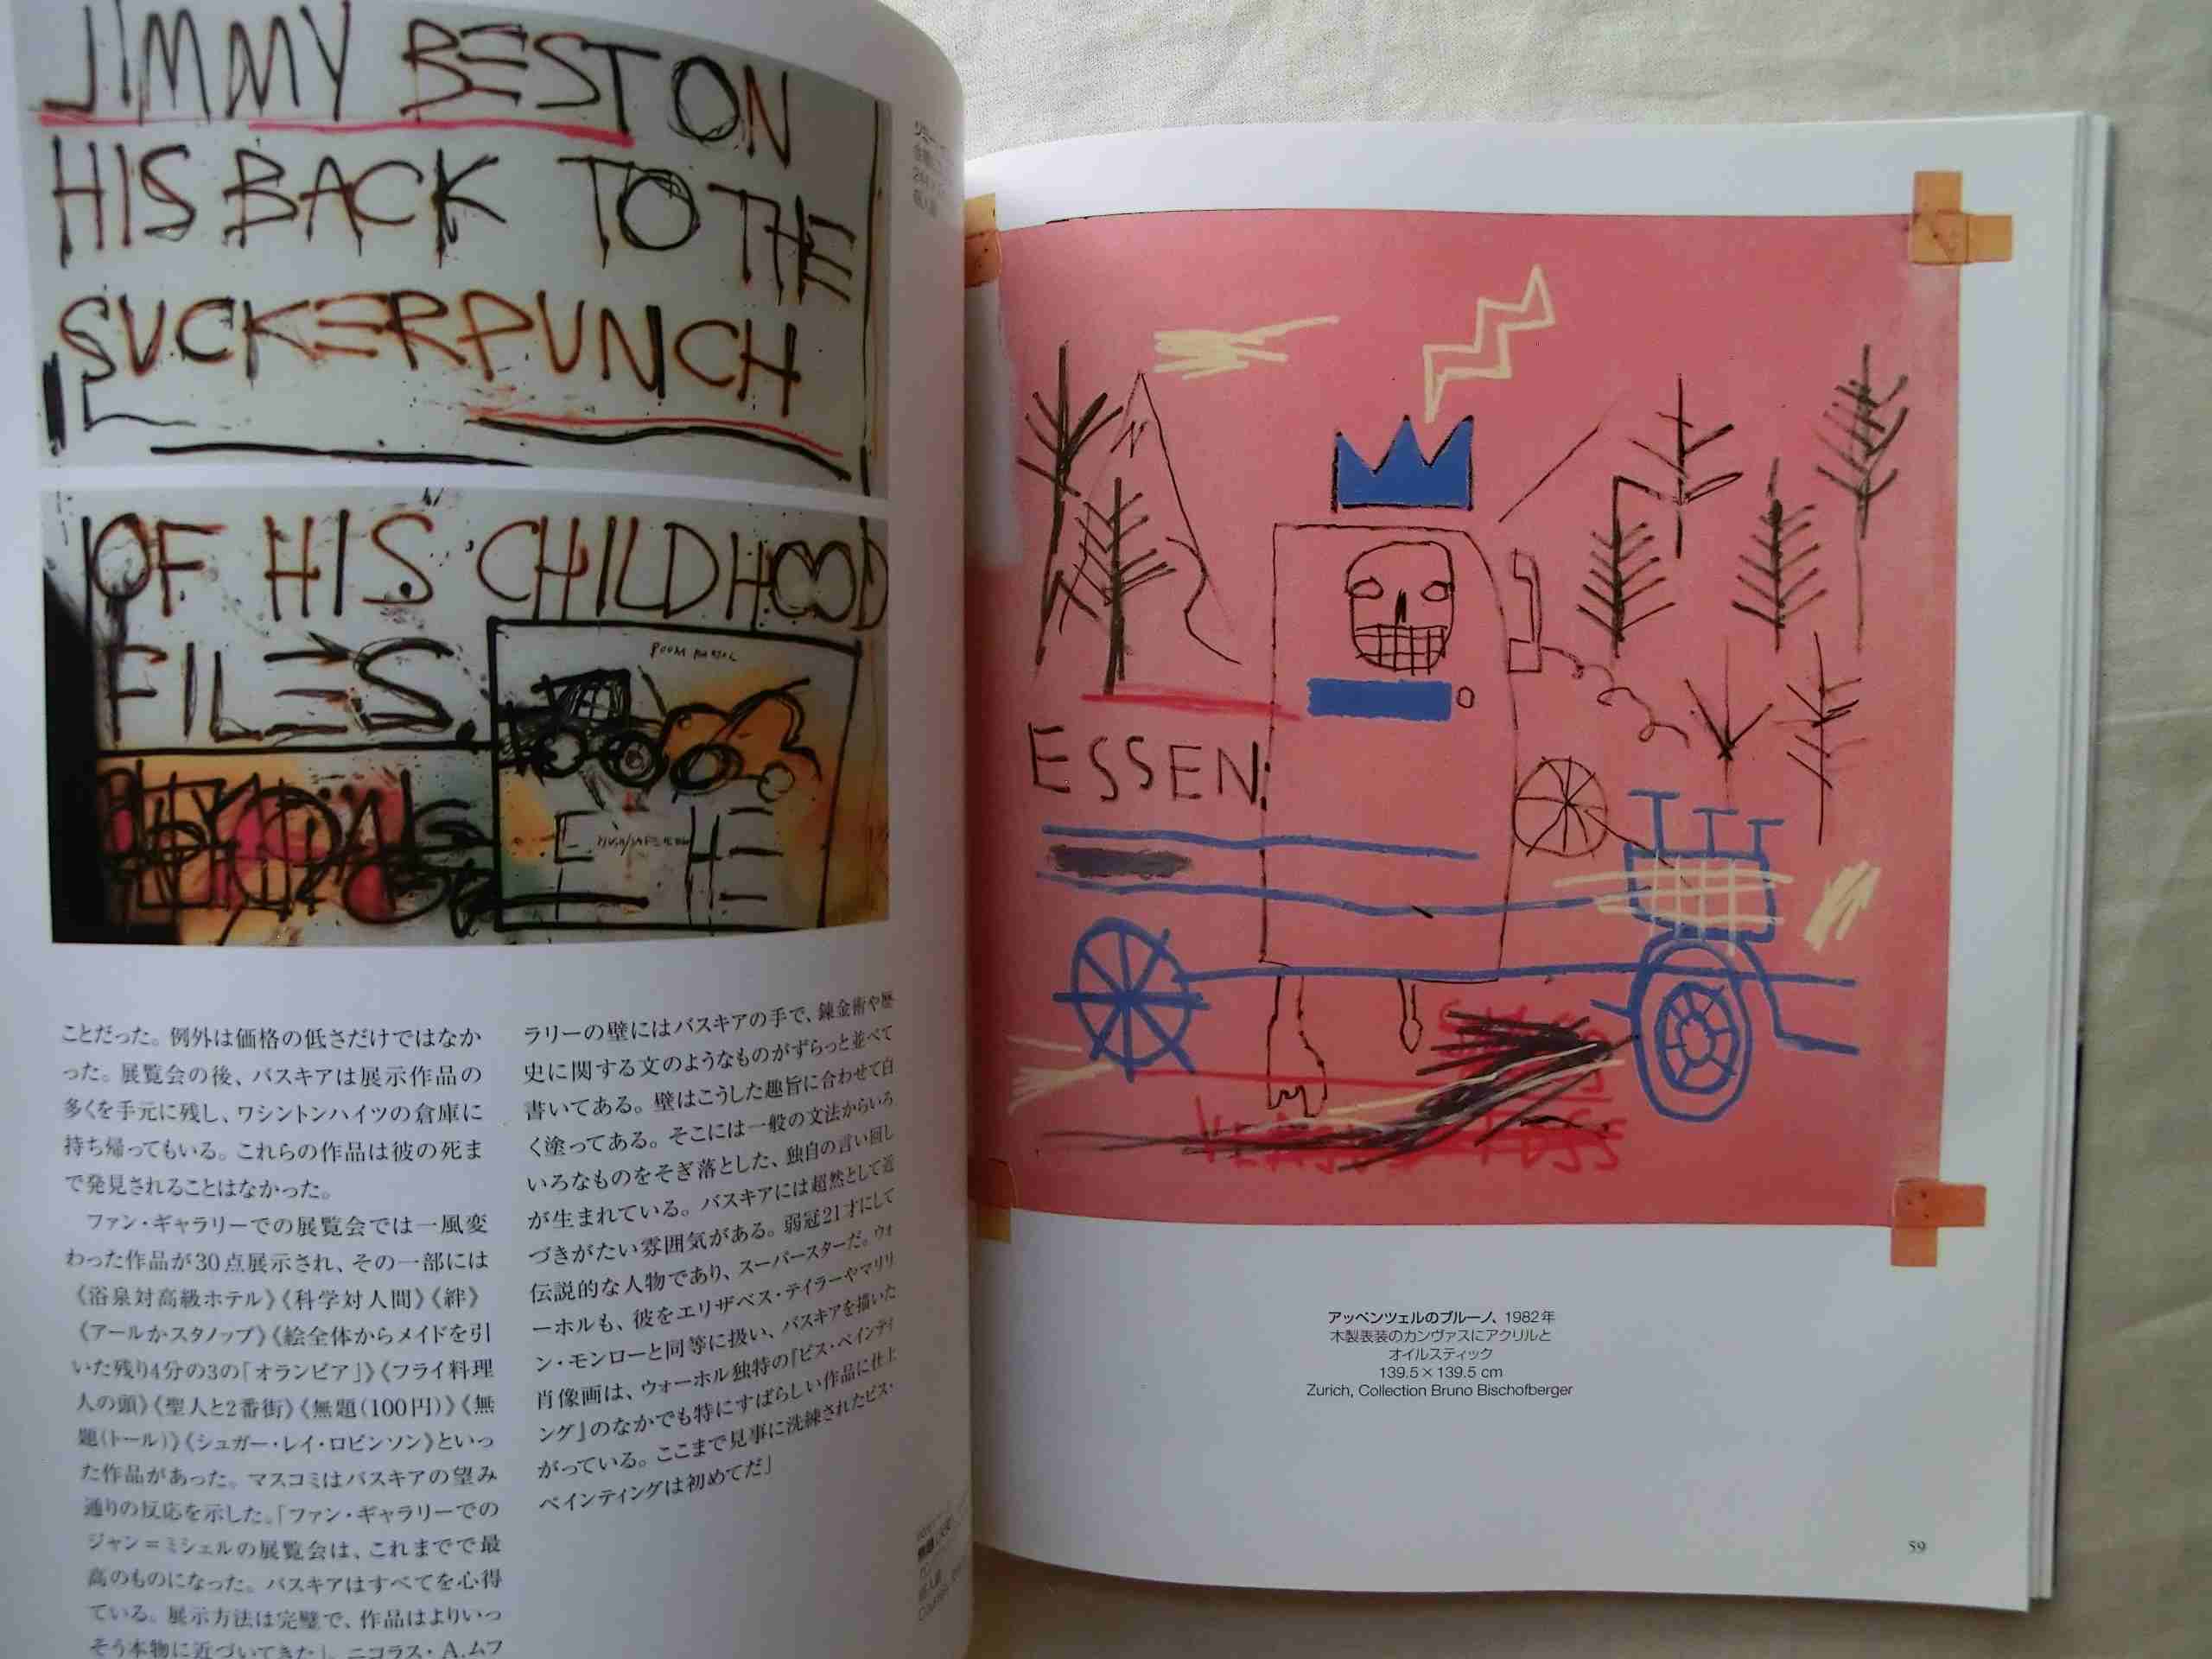 JIMMY BEST ON
HIS BACK TO THE
SUCKERPUNCH
OF HIS CHILDHOOD
FILES.
ことだった。例外は価格の低さだけではなか
った。展覧会の後、バスキアは展示作品の
多くを手元に残し、ワシントンハイツの倉庫に
持ち帰ってもいる。これらの作品は彼の死ま
で発見されることはなかった。
ファン・ギャラリーでの展覧会では一風変
わった作品が30点展示され、その一部には
《浴泉対高級ホテル》《科学対人間》《絆》
《アールかスタノップ》《絵全体からメイドを引
いた残り4分の3の「オランピア」》《フライ料理
人の頭》《聖人と2番街》《無題(100円)》《無
題(トール)》《シュガー・レイ・ロビンソン》といっ
た作品があった。マスコミはバスキアの望み
通りの反応を示した。「ファン・ギャラリーでの
ジャン=ミシェルの展覧会は、これまでで最
高のものになった。バスキアはすべてを心得
ている。展示方法は完璧で、作品はよりいっ
そう本物に近づいてきた」。ニコラス・A.ムフ
ラリーの壁にはバスキアの手で、錬金術や歴
史に関する文のようなものがずらっと並べて
書いてある。壁はこうした趣旨に合わせて白
く塗ってある。そこには一般の文法からいろ
いろなものをそぎ落とした、独自の言い回し
が生まれている。バスキアには超然として近
づきがたい雰囲気がある。弱冠21才にして
伝説的な人物であり、スーパースターだ。ウォ
ーホルも、彼をエリザベス・テイラーやマリリ
ン・モンローと同等に扱い、バスキアを描いた
肖像画は、ウォーホル独特の「ピス・ペインティ
ング」のなかでも特にすばらしい作品に仕上
がっている。ここまで見事に洗練されたピス・
ペインティングは初めてだ」
ESSEN
アッペンツェルのブルーノ、1982年
木製表装のカンヴァスにアクリルと
オイルスティック
139.5×139.5 cm
Zurich, Collection Bruno Bischofberger
59